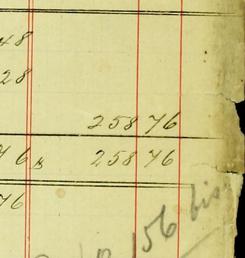 48
28
258 76
76 B 258 76
76
156 bis